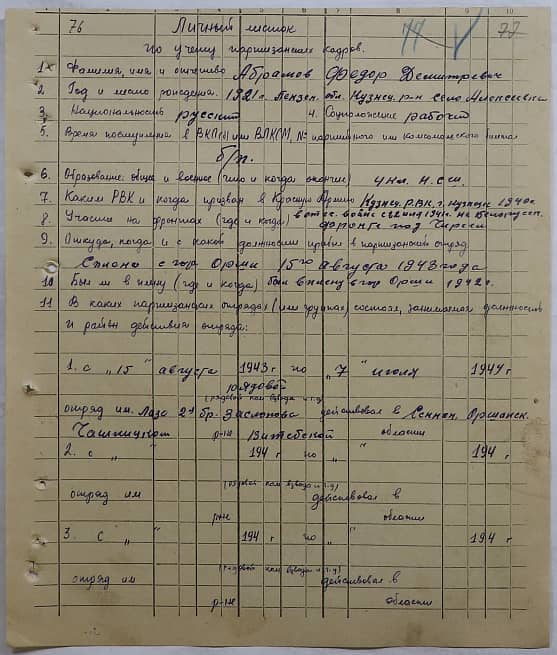 76 77 78
Личный листок
по учету партизанских кадров.
1. Фамилия, имя и отчество Абрамов Федор Дмитревич
2. Год и место рождения. 1921 г. Пензен. обл. Кузнец. р-н село Алексеевка
3. Национальность русский 4. Соцположение рабочий
5. Время поступления в ВКП(б) или ВЛКСМ, № партийного или комсомольского билета
б/п.
6. Образование: общее и военное (что и когда окончил)
7. Каким РВК и когда призван в Красную Армию Кузнец. РВК, г. Кузнецк 1940 г.
8. Участие на фронтах (где и когда) в отеч. войне с 22 июня 1941 г. на
фронте под
9. Откуда, когда и с какой должности прибыл в партизанский отряд
с гор Орши 15го августа 1943 года
10 Был ли в плену (где и когда) был в плену в гор Орши 1942 г.
11 В каких партизанских отрядах (или группах) состоял, занимаемая должность
и район действия отряда:
1. с „15" августа 1943 г по „7" июля 1944 г
рядовой
(рядовой ком взвода и т.д)
отряд им. Лазо 2й бр. Заслонова действовал в Сеннен. Оршанск.
Чашницком р-не Витебской области
2. с „ " 194 г по „ " 194 г
(рядовой ком взвода и т.д)
отряд им действовал в
р-не области
3. с „ " 194 г по „ " 194 г
(рядовой ком взвода и т.д)
отряд им действовал в
р-не области